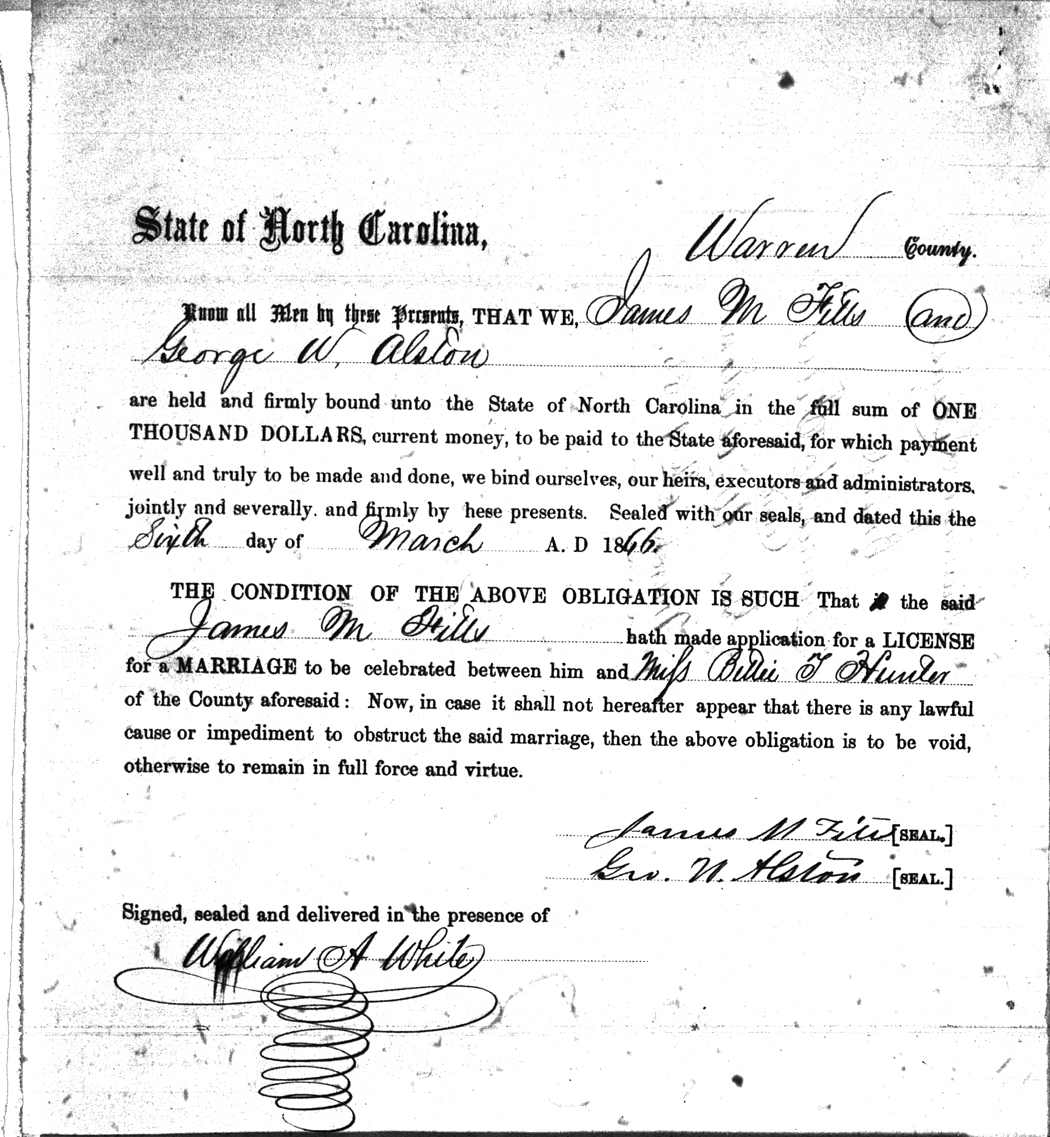 State of North Carolina, Warren County.
Know all Men by these Presents, THAT WE, James M Fitts and
George W. Alston
are held and firmly bound unto the State of North Carolina in the full sum of ONE
THOUSAND DOLLARS, current money, to be paid to the State aforesaid, for which payment
well and truly to be made and done, we bind ourselves, our heirs, executors and administrators,
jointly and severally. and firmly by hese presents. Sealed with our seals, and dated this the
Sixth day of March A. D 1866.
THE CONDITION OF THE ABOVE OBLIGATION IS SUCH That the said
James M Fitts hath made application for a LICENSE
for a MARRIAGE to be celebrated between him and Miss Bettie T Hunter
of the County aforesaid: Now, in case it shall not hereafter appear that there is any lawful
cause or impediment to obstruct the said marriage, then the above obligation is to be void,
otherwise to remain in full force and virtue.
James M Fitts [SEAL.]
Geo. W. Alston [SEAL.]
Signed, sealed and delivered in the presence of
William A White